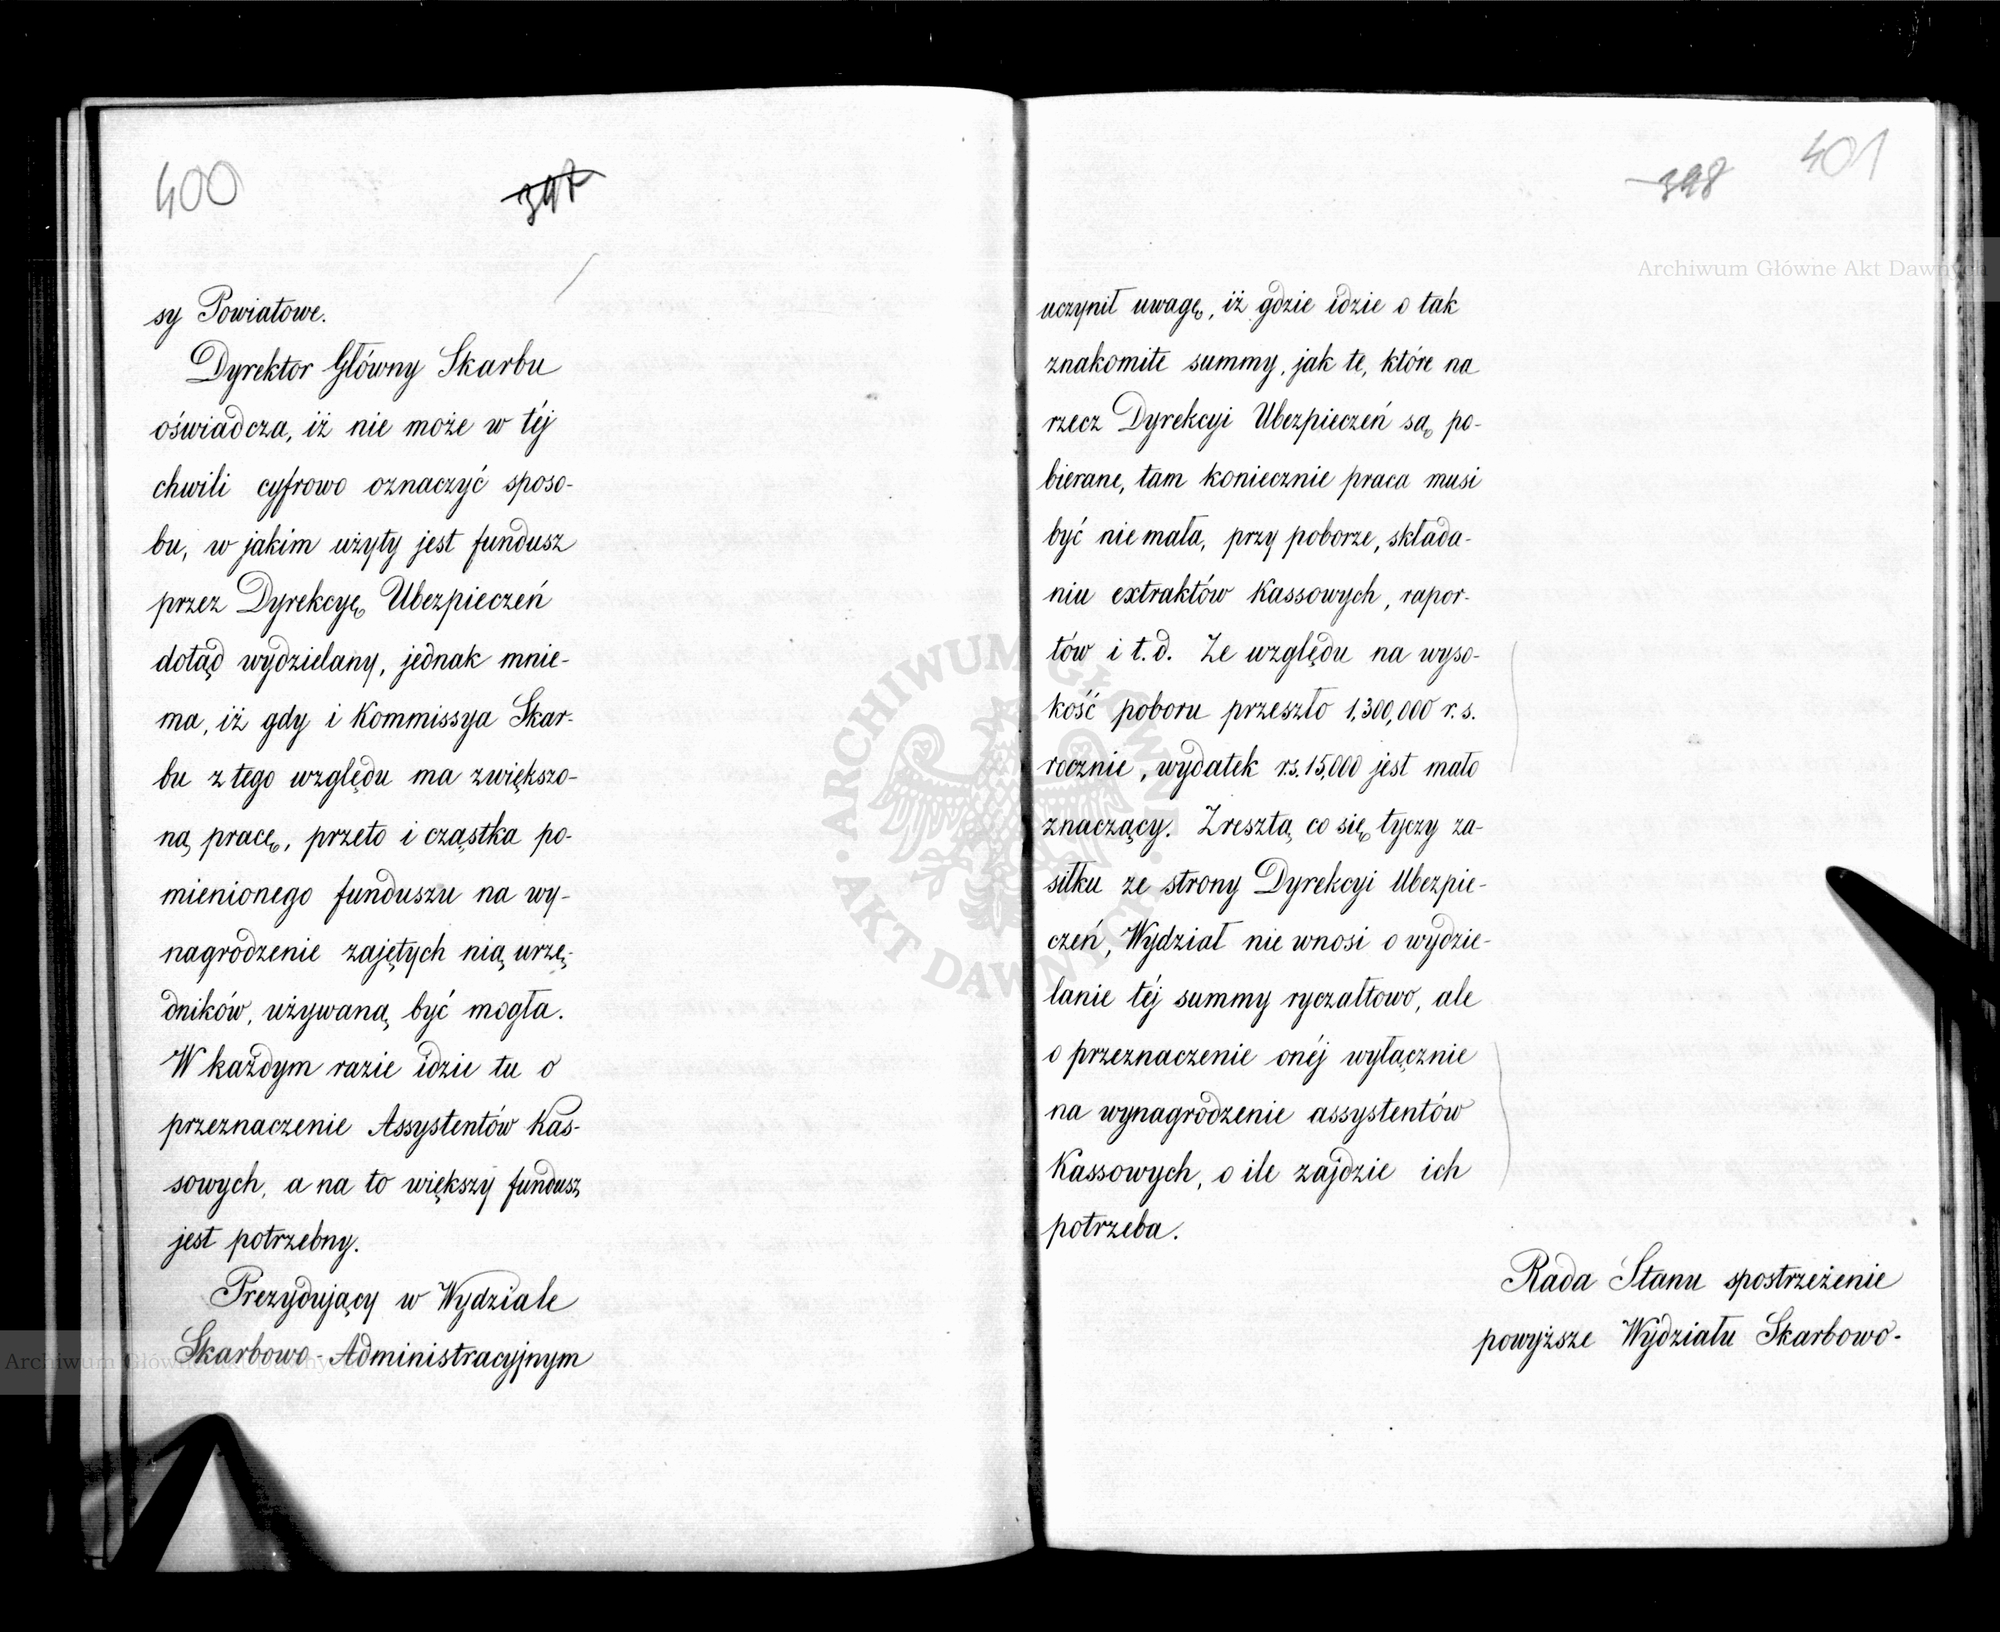 400
397
sy Powiatowe.
Dyrektor Główny Skarbu
oświadcza, iż nie może w téj
chwili cyfrowo oznaczyć sposo-
bu, w jakim użyty jest fundusz
przez Dyrekcyę Ubezpieczeń
dotąd wydzielany, jednak mnie-
ma, iż gdy i Kommissya Skar-
bu z tego względu ma zwiększo-
ną pracę, przeto i cząstka po-
mienionego funduszu na wy-
nagrodzenie zajętych nią urzę-
dników, używaną być mogła.
W każdym razie idzie tu o
przeznaczenie Assystentów Kas-
sowych, a na to większy fundusz
jest potrzebny.
Prezydujący w Wydziale
Skarbowo-Administracyjnym
401
398
Archiwum Główne Akt Dawnych
uczynił uwagę, iż gdzie idzie o tak
znakomite summy, jak te, które na
rzecz Dyrekcyi Ubezpieczeń są po-
bierane, tam koniecznie praca musi
być nie mała, przy poborze, składa-
niu extraktów Kassowych, rapor-
tów i t.d. Ze względu na wyso-
kość poboru przeszło 1,300,000 r.s.
rocznie, wydatek r.s. 15,000 jest mało
znaczący. Zresztą co się tyczy za-
siłku ze strony Dyrekcyi Ubezpie-
czeń, Wydział nie wnosi o wydzie-
lanie téj summy ryczałtowo, ale
o przeznaczenie onéj wyłącznie
na wynagrodzenie assystentów
Kassowych, o ile zajdzie ich
potrzeba.
Rada Stanu spostrzeżenie
powyższe Wydziału Skarbowo-
ARCHIWUM GŁÓWNE
AKT DAWNYCH
Archiwum Główne Akt Dawnych